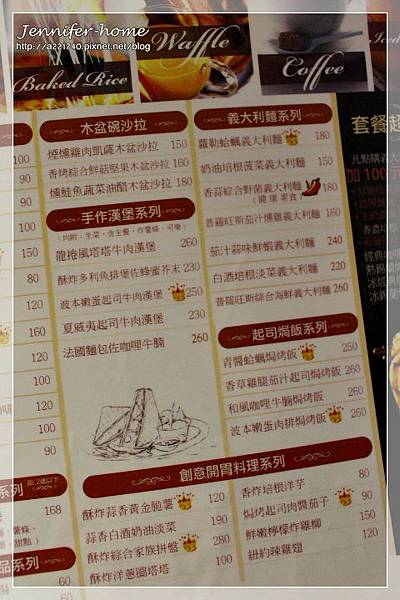 Jennifer-home
http://a221740.pixnet.net/blog
Baked Rice
Waffle
Coffee
Iced
木盆碗沙拉
煙燻雞肉凱薩木盆沙拉 150
香烤綜合鮮菇堅果木盆沙拉 160
燻鮭魚蔬菜油醋木盆沙拉 180
手作漢堡系列
(均附:生菜、含主餐、炸薯條、可樂)
龍捲風塔塔牛肉漢堡 260
酥炸多利魚排堡佐蜂蜜芥末 230
波本嫩蛋起司牛肉漢堡 250
夏威夷起司牛肉漢堡 230
法國麵包佐咖哩牛腩 260
義大利麵系列
羅勒蛤蠣義大利麵 180
奶油培根菠菜義大利麵 150
香蒜綜合野菌義大利麵 180
(健康素食)
普羅旺斯茄汁燻雞義大利麵 160
茄汁蒜味鮮蝦義大利麵 260
白酒培根淡菜義大利麵 220
普羅旺斯綜合海鮮義大利麵 260
起司焗飯系列
青醬蛤蠣焗烤飯 250
香草雞腿茄汁起司焗烤飯 250
和風咖哩牛腩焗烤飯 260
波本嫩蛋肉排焗烤飯 250
創意開胃料理系列
酥炸蒜香黃金脆薯 120
蒜香白酒奶油淡菜 190
酥炸綜合家族拼盤 280
酥炸洋蔥圈塔塔 90
香炸培根洋芋 80
焗烤起司肉醬茄子 90
鮮嫩檸檬炸雞柳 150
紐約辣雞翅 120
套餐起
凡點購義大
加100元
100
90
90
100
150
100
120
160
100
100
120
130
系列
限12歲以下
168
薯條、
甜點)
品系列
60
60